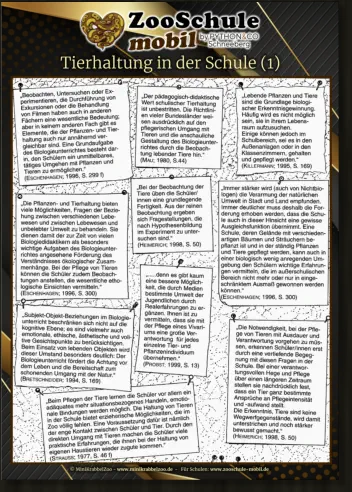 ZooSchule
mobil by PYTHON&CO
Schneeberg
Tierhaltung in der Schule (1)
Beobachten, Untersuchen oder Ex-
perimentieren, die Durchführung von
Exkursionen oder die Behandlung
von Filmen haben auch in anderen
Fächern eine wesentliche Bedeutung,
aber in keinem anderen Fach gibt es
Elemente, die der Pflanzen- und Tier-
haltung auch nur annähernd ver-
gleichbar sind. Eine Grundaufgabe
des Biologieunterrichts besteht dar-
in, den Schülern ein unmittelbares,
tätiges Umgehen mit Pflanzen und
Tieren zu ermöglichen."
(ESCHENHAGEN, 1998, S. 299 f)
„Der pädagogisch-didaktische
Wert schulischer Tierhaltung
ist unbestritten. Die Richtlini-
en vieler Bundesländer wei-
sen ausdrücklich auf den
pflegerischen Umgang mit
Tieren und die anschauliche
Gestaltung des Biologieunter-
richts durch die Beobach-
tung lebender Tiere hin."
(MAU, 1980, S.44)
„Lebende Pflanzen und Tiere
sind die Grundlage biologi-
scher Erkenntnisgewinnung.
Häufig wird es nicht möglich
sein, sie in ihrem Lebens-
raum aufzusuchen.
Einige können jedoch im
Schulbereich, sei es in den
Außenanlagen oder in den
Klassenzimmern, gehalten
und gepflegt werden."
(KILLERMANN; 1995, S. 169)
„Die Pflanzen- und Tierhaltung bieten
viele Möglichkeiten, Fragen der Bezie-
hung zwischen verschiedenen Lebe-
wesen und zwischen Lebewesen und
unbelebter Umwelt zu behandeln. Sie
dienen damit der zur Zeit von vielen
Biologiedidaktikern als besonders
wichtige Aufgabe des Biologieunter-
richtes angesehene Förderung des
Verständnisses ökologischer Zusam-
menhänge. Bei der Pflege von Tieren
können die Schüler zudem Beobach-
tungen anstellen, die wesentliche etho-
logische Einsichten vermitteln."
(ESCHENHAGEN; 1996, S. 300)
„Bei der Beobachtung der
Tiere üben die Schüler/
innen eine grundlegende
Fertigkeit. Aus der reinen
Beobachtung ergeben
sich Fragestellungen, die
nach Hypothesenbildung
im Experiment zu unter-
suchen sind."
(HEIMERICH; 1998, S. 50)
Immer stärker wird (auch von Nichtbio-
logen) die Verarmung der natürlichen
Umwelt in Stadt und Land empfunden.
Immer deutlicher muss deshalb die For-
derung erhoben werden, dass die Schu-
le auch in dieser Hinsicht eine gewisse
Ausgleichsfunktion übernimmt. Eine
Schule, deren Gelände mit verschieden-
artigen Bäumen und Sträuchern be-
pflanzt ist und in der ständig Pflanzen
und Tiere gepflegt werden, kann auch in
einer biologisch wenig anregenden Um-
gebung den Schülern wichtige Erfahrun-
gen vermitteln, die im außerschulischen
Bereich nicht mehr oder nur in einge-
schränktem Ausmaß gewonnen werden
können."
(ESCHENHAGEN; 1996, S. 300)
„...denn es gibt kaum
eine bessere Möglich-
keit, die durch Medien
bestimmte Umwelt der
Jugendlichen durch
Realerfahrungen zu er-
gänzen. Ihnen ist zu
vermitteln, dass sie mit
der Pflege eines Vivari-
ums eine große Ver-
antwortung für jedes
einzelne Tier- und
Pflanzenindividuum
übernehmen."
(PROBST; 1999, S. 13)
„Subjekt-Objekt-Beziehungen im Biologie-
unterricht beschränken sich nicht auf die
kognitive Ebene; es sind vielmehr auch
emotionale, ethische, ästhetische und voli-
tive Gesichtspunkte zu berücksichtigen.
Beim Einsatz von lebenden Objekten wird
dieser Umstand besonders deutlich: Der
Biologieunterricht fördert die Achtung vor
dem Leben und die Bereitschaft zum
schonenden Umgang mit der Natur."
(BRETSCHNEIDER; 1994, S. 169).
„Die Notwendigkeit, bei der Pfle-
ge von Tieren mit Ausdauer und
Verantwortung vorgehen zu müs-
sen, erkennen Schüler/innen erst
durch eine vertiefende Begeg-
nung mit diesen Fragen in der
Schule. Bei einer verantwor-
tungsvollen Hege und Pflege
über einen längeren Zeitraum
stellen sie nachdrücklich fest,
dass ein Tier ganz bestimmte
Ansprüche an Pflegeintensität
und -aufwand stellt.
Die Erkenntnis, Tiere sind keine
Wegwerfgegenstände, wird damit
unterstrichen und noch stärker
bewusst gemacht."
(HEIMERICH; 1998, S. 50)
„Beim Pflegen der Tiere lernen die Schüler vor allem ein
adäquates mehr situationsbezogenes Handeln, emotio-
nale Bindungen werden möglich. Die Haltung von Tieren
in der Schule bietet erzieherische Möglichkeiten, die im
Zoo völlig fehlen. Eine Voraussetzung dafür ist nämlich
der enge Kontakt zwischen Schüler und Tier. Durch den
direkten Umgang mit Tieren machen die Schüler viele
praktische Erfahrungen, die ihnen bei der Haltung von
eigenen Haustieren wieder zugute kommen."
(STRAUßE, 1977, S. 461)
© MiniKrabbelZoo - www.minikrabbelzoo.de - Für Schulen: www.zooschule-mobil.de